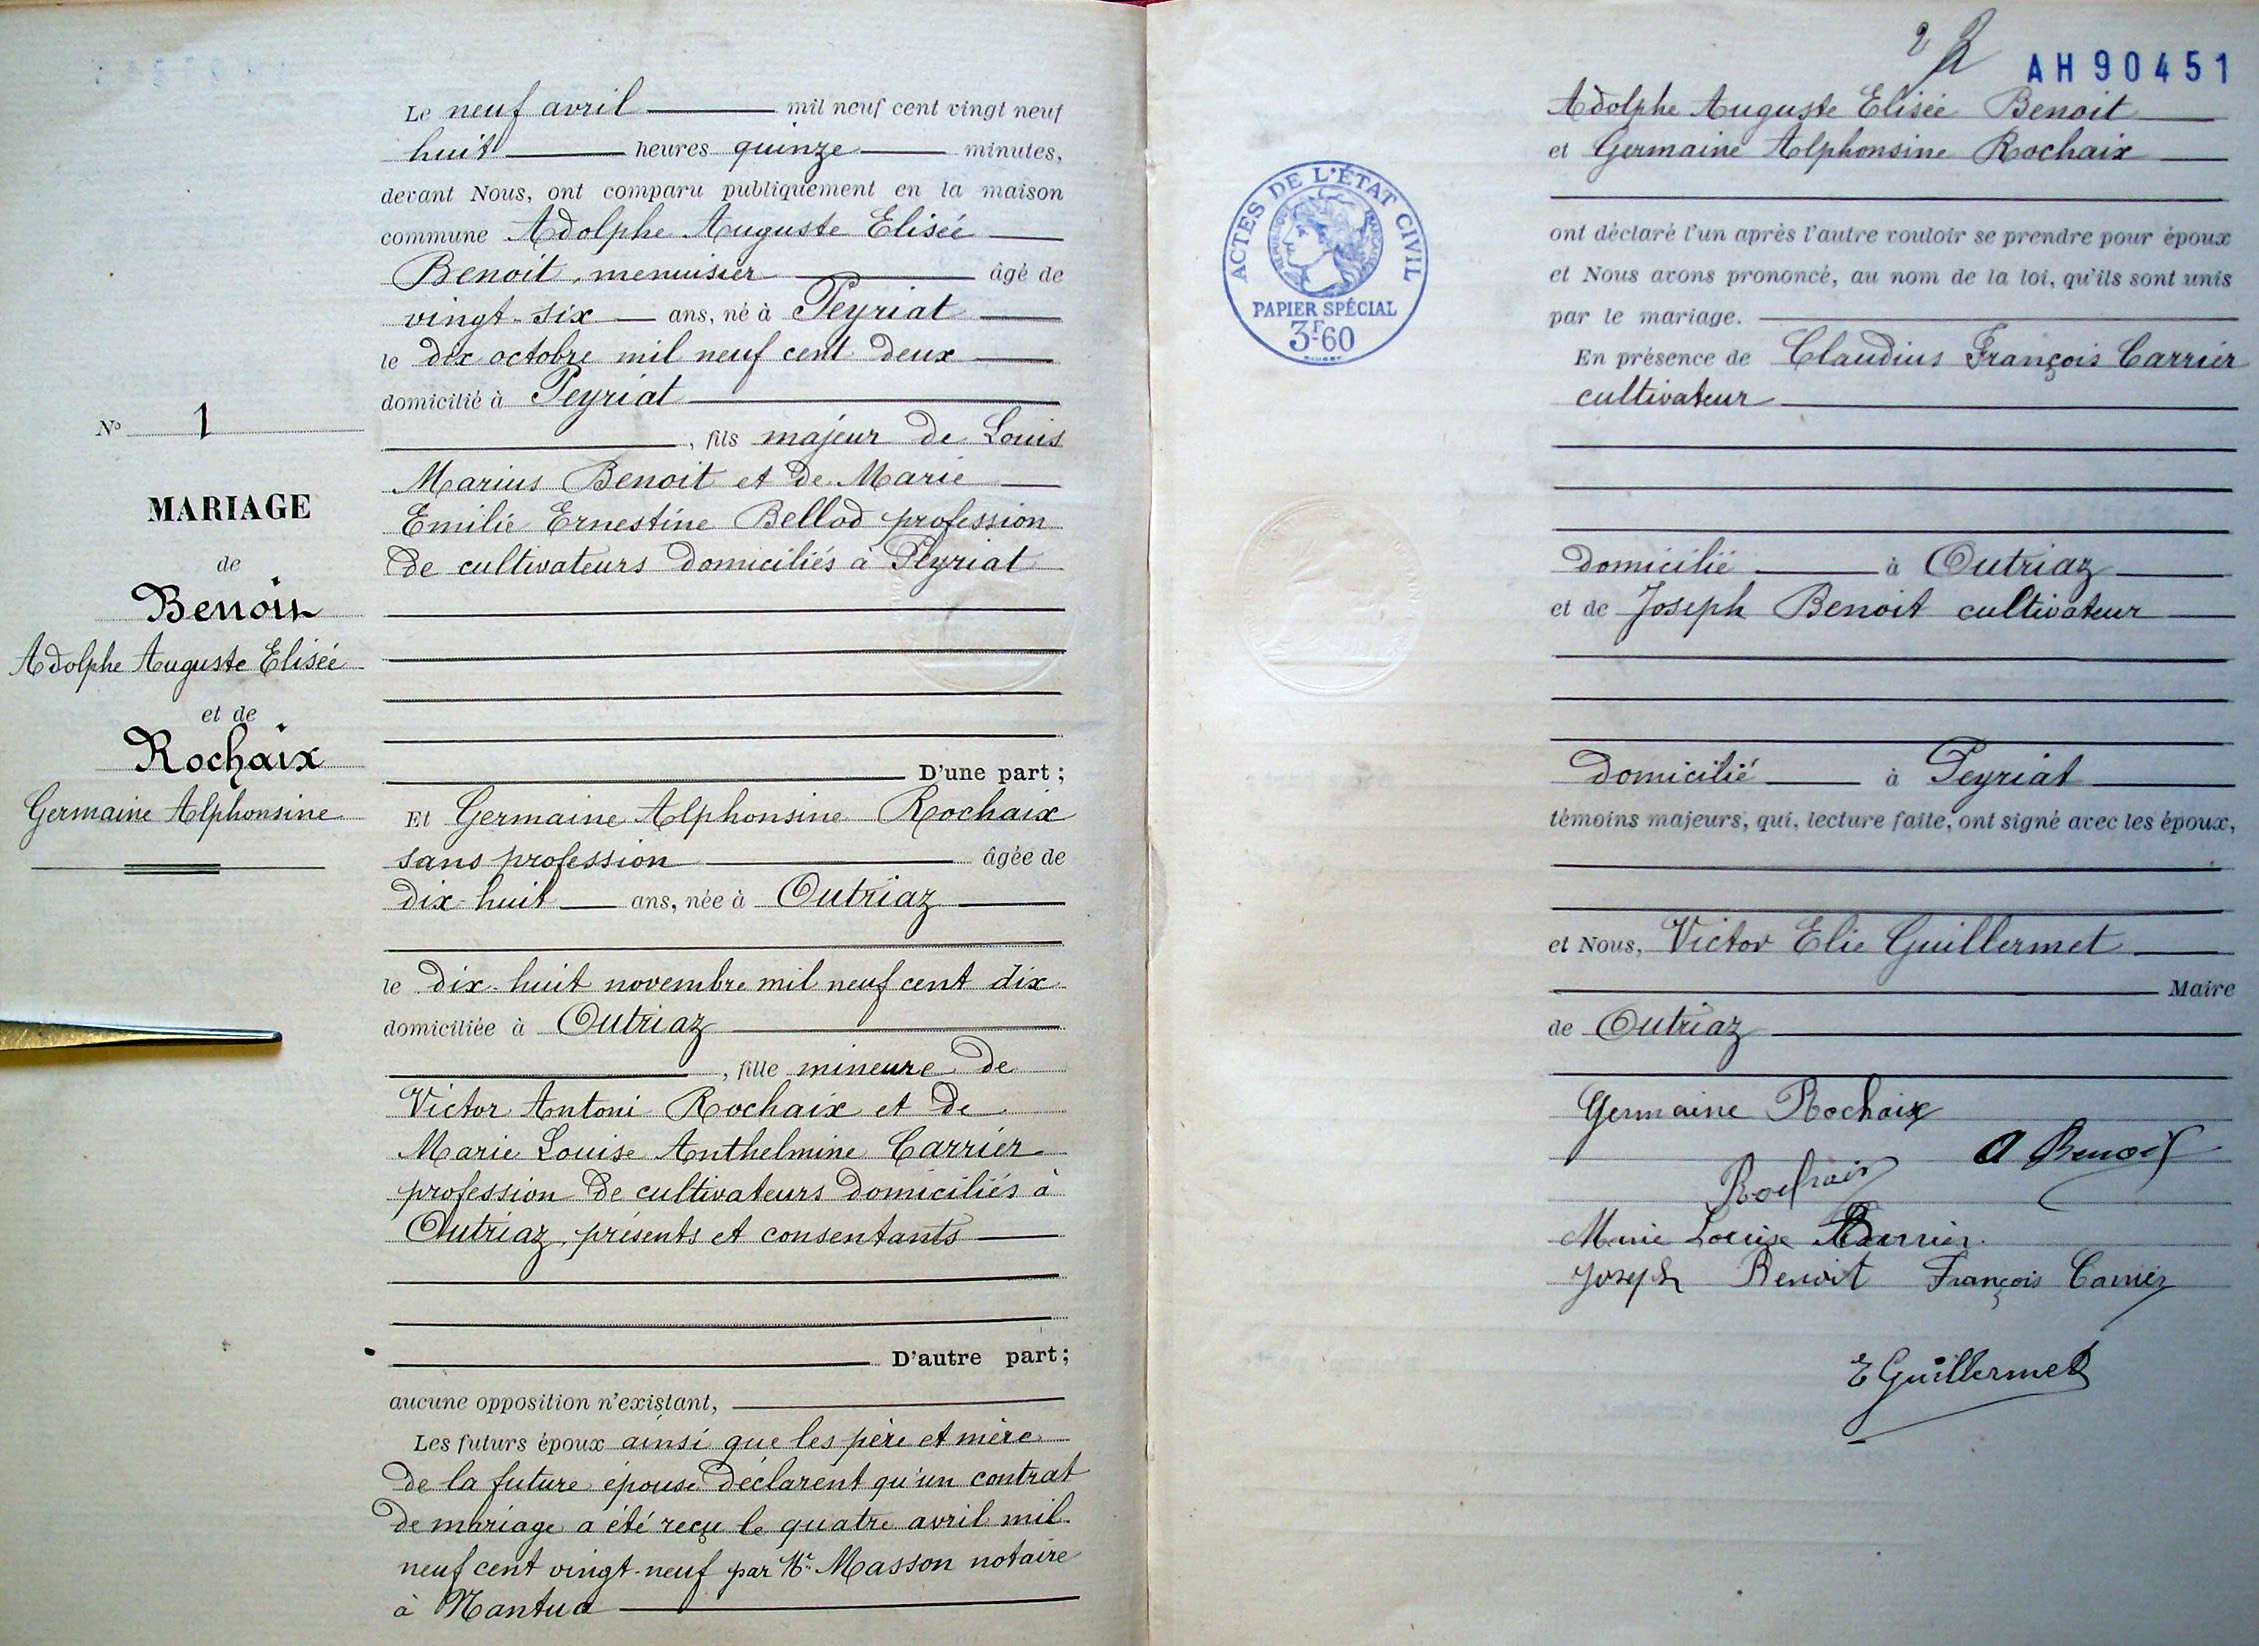 Le neuf avril mil neuf cent vingt neuf
huit heures quinze minutes,
devant Nous, ont comparu publiquement en la maison
commune Adolphe Auguste Elisée
Benoit, menuisier âgé de
vingt-six ans, né à Peyriat
le dix octobre mil neuf cent deux
domicilié à Peyriat
, fils majeur de Louis
Marius Benoit et de Marie
Emilie Ernestine Bellod profession
de cultivateurs domiciliés à Peyriat
D'une part;
Et Germaine Alphonsine Rochaix
sans profession âgée de
dix-huit ans, née à Outriaz
le dix-huit novembre mil neuf cent dix
domiciliée à Outriaz
, fille mineure de
Victor Antoni Rochaix et de
Marie Louise Anthelmine Carrier
profession de cultivateurs domiciliés à
Outriaz, présents et consentants
D'autre part;
aucune opposition n'existant,
Les futurs époux ainsi que les père et mère
de la future épouse déclarent qu'un contrat
de mariage a été reçu le quatre avril mil
neuf cent vingt-neuf par Me Masson notaire
à Nantua
No 1
MARIAGE
de
Benoit
Adolphe Auguste Elisée
et de
Rochaix
Germaine Alphonsine
2
AH90451
ACTES DE L'ÉTAT CIVIL
PAPIER SPÉCIAL
3F60
Adolphe Auguste Elisée Benoit
et Germaine Alphonsine Rochaix
ont déclaré l'un après l'autre vouloir se prendre pour époux
et Nous avons prononcé, au nom de la loi, qu'ils sont unis
par le mariage.
En présence de Claudius François Carrier
cultivateur
domicilié à Outriaz
et de Joseph Benoit cultivateur
domicilié à Peyriat
témoins majeurs, qui, lecture faite, ont signé avec les époux,
et Nous, Victor Elie Guillermet
Maire
de Outriaz
Germaine Rochaix
A Benoit
Rochaix
Marie Louise Carrier
Joseph Benoit François Carrier
E Guillermet